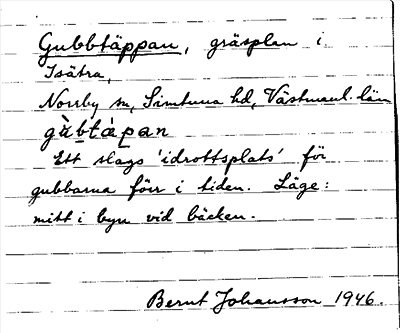 Gubbtäppan, gräsplan i
Isätra,
Norrby sn, Simtuna hd, Västmanl. län
gùbtápan
Ett slags 'idrottsplats' för
gubbarna förr i tiden. Läge:
mitt i byn vid bäcken.
Bernt Johansson 1946.